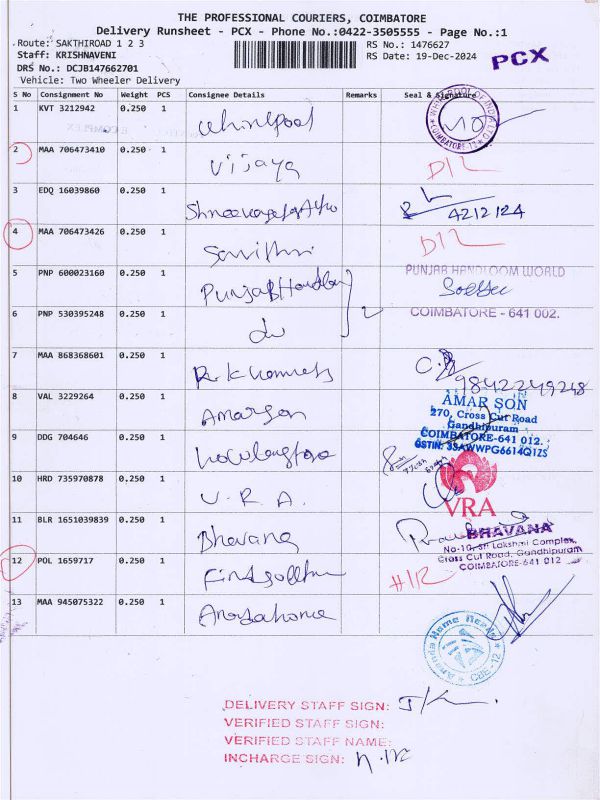 THE PROFESSIONAL COURIERS, COIMBATORE
Delivery Runsheet - PCX - Phone No.:0422-3505555 - Page No.:1
Route: SAKTHIROAD 1 2 3
RS No.: 1476627
Staff: KRISHNAVENI
RS Date: 19-Dec-2024
PCX
DRS No.: DCJB147662701
Vehicle: Two Wheeler Delivery
S No Consignment No Weight PCS Consignee Details Remarks Seal & Signature
1 KVT 3212942 0.250 1 Whirlpool
WHIRLPOOL OF INDIA LTD COIMBATORE
2 MAA 706473410 0.250 1 Vijaya D/L
3 EDQ 16039860 0.250 1
4 MAA 706473426 0.250 1 Savithri D/L
5 PNP 600023160 0.250 1 Punjab Handloom
PUNJAB HANDLOOM WORLD
6 PNP 530395248 0.250 1 do 2
COIMBATORE - 641 002.
7 MAA 868368601 0.250 1
9842249248
8 VAL 3229264 0.250 1 Amarson
AMAR SON
270, Cross Cut Road
Gandhipuram
COIMBATORE-641 012.
GSTIN: 33AWWPG6614Q1ZS
9 DDG 704646 0.250 1
10 HRD 735970878 0.250 1 V.R.A.
VRA
11 BLR 1651039839 0.250 1 Bhavana
BHAVANA
No-10, Sri Lakshmi Complex,
Cross Cut Road, Gandhipuram
COIMBATORE-641 012
12 POL 1659717 0.250 1
13 MAA 945075322 0.250 1
Home Needs
CBE-12
DELIVERY STAFF SIGN:
VERIFIED STAFF SIGN:
VERIFIED STAFF NAME:
INCHARGE SIGN: